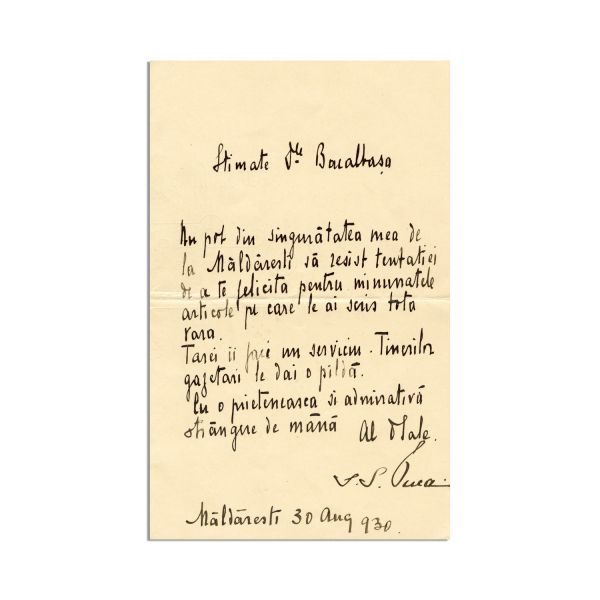 Stimate Dle Bacalbașa
Nu pot din singurătatea mea de
la Măldărești să resist tentației
de a te felicita pentru minunatele
articole pe care le ai scris tota
vara.
Țarei ii faci un serviciu. Tinerilor
gazetari le dai o pildă.
Cu o prieteneasca si admirativă
strângere de mână Al Dtale.
I. G. Duca
Măldărești 30 Aug 930.